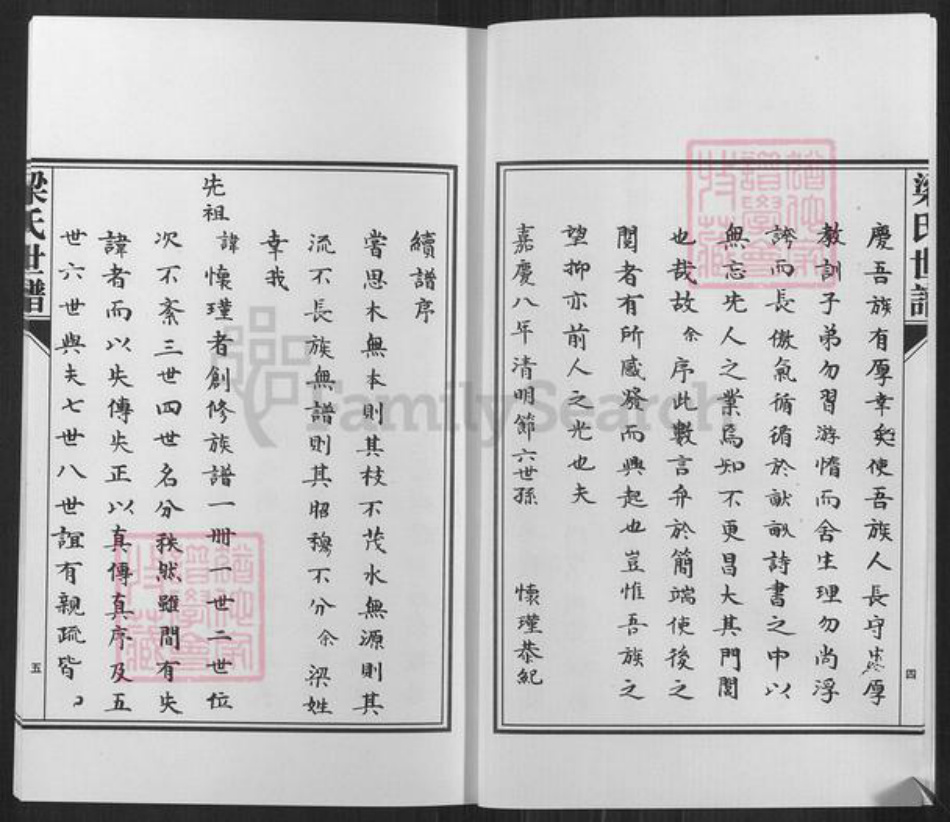 梁氏世譜
慶吾族有厚幸矣使吾族人長守忠厚
教訓子弟勿習游惰而舍生理勿尚浮
誇而長傲氣循循於畎畝詩書之中以
無忘先人之業焉知不更昌大其門閭
也哉故余序此數言弁於簡端使後之
閱者有所感發而興起也豈惟吾族之
望抑亦前人之光也夫
嘉慶八年清明節六世孫 懷瑾恭紀
四
續譜序
嘗思木無本則其枝不茂水無源則其
流不長族無譜則其昭穆不分余梁姓
幸我
先祖諱懷瑾者創修族譜一冊一世二世位
次不紊三世四世名分秩然雖間有失
諱者而以失傳失正以真傳真序及五
世六世與夫七世八世誼有親疏皆
梁氏世譜
五
FamilySearch